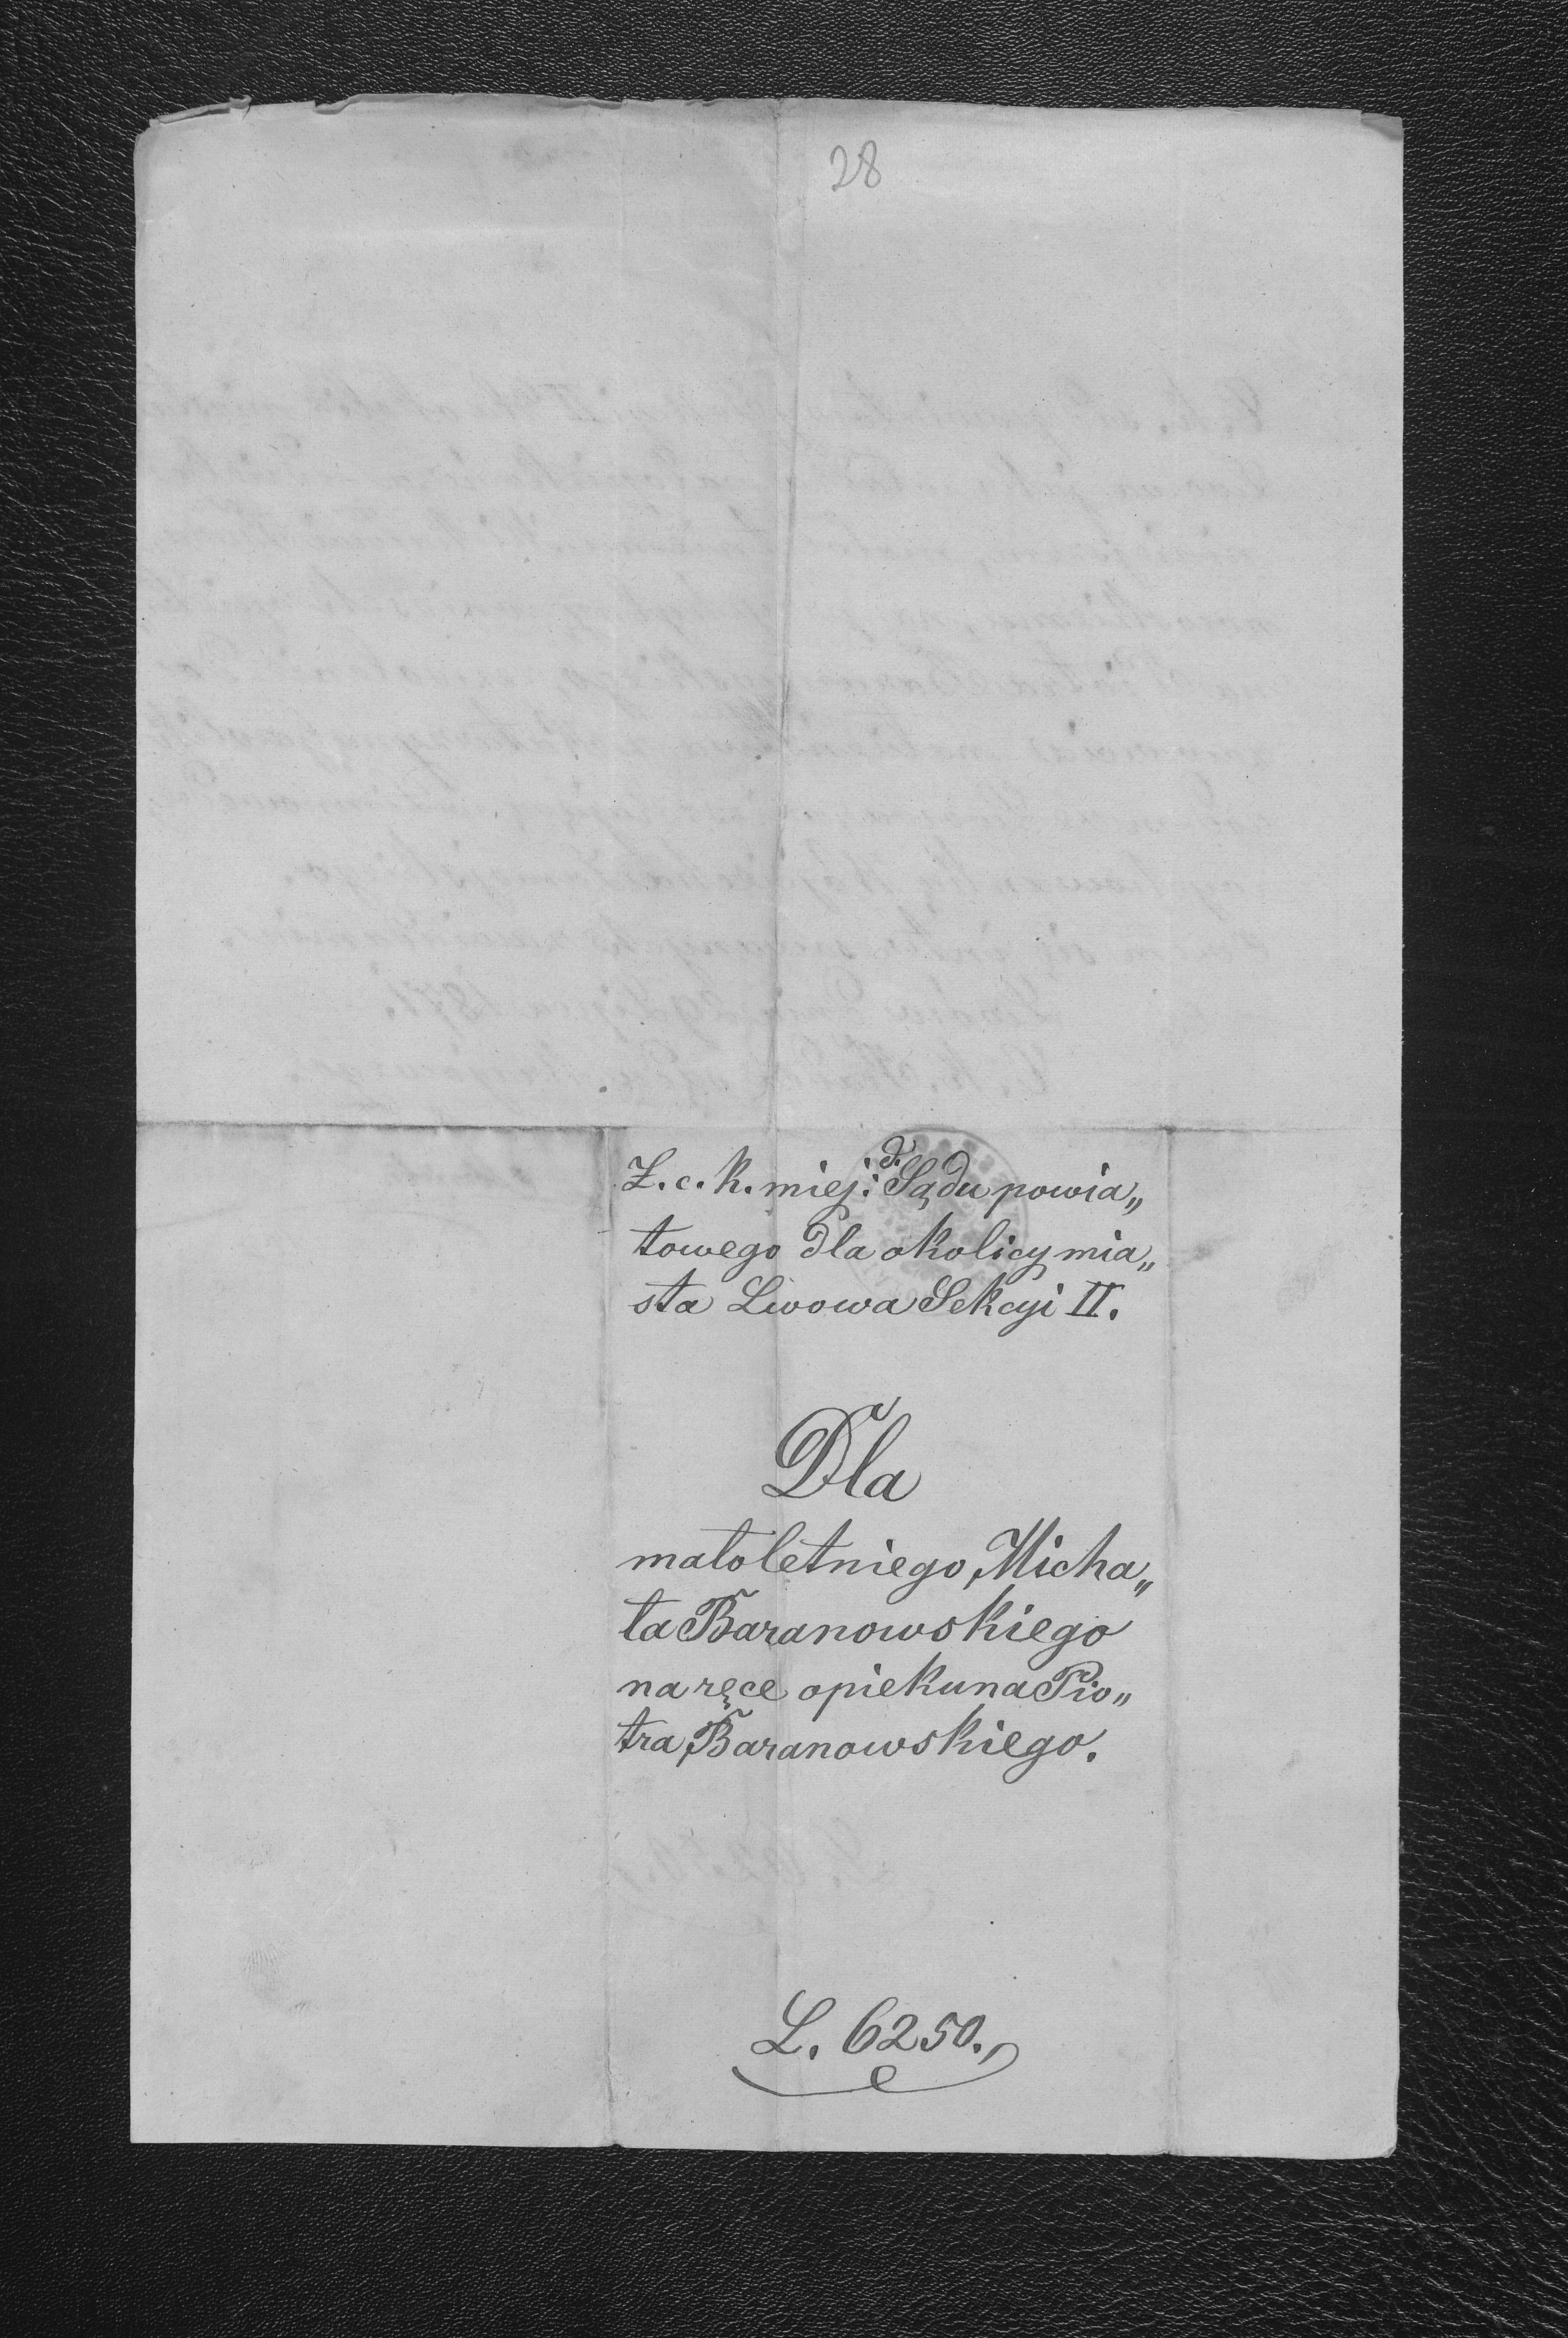 28
Z. c. k. miej: d. Sądu powia„
towego dla okolicy mia„
sta Lwowa Sekcyi II.
Dla
małoletniego Micha„
ła Baranowskiego
na ręce opiekuna Pio„
tra Baranowskiego.
L. 6250.